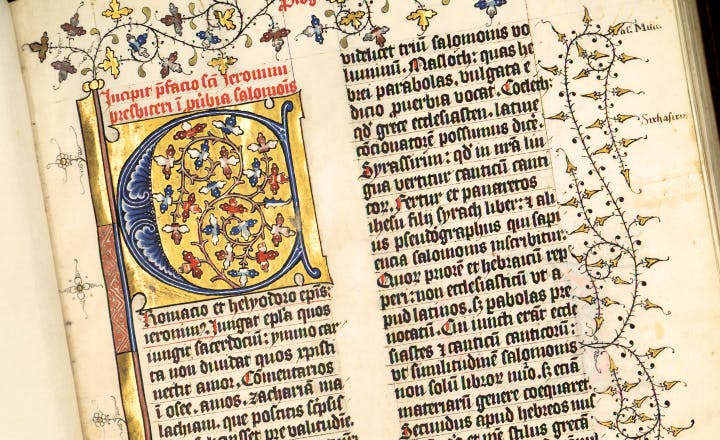 Prologus
Incipit p̄facio sci Ieronimi
presbiteri ī ꝓūbia salomōīs
C
Romacio et helyodoro epīs:
ieronimꝰ. Jungat epl̄a quos
iungit sacerdociū: ymmo car
ta non diuidat quos xp̄isti
nectit amor. Cōmentarios
ī osee. amos. zachariā ma
lachiam. que poscitis sc̄psis
sem si licuisset pre valitudīe.
videlicet triū salomonis vo
luminū. Masloth: quas he
brei parabolas. vulgata e
dicio ꝓuerbia vocat. Coeleth:
qd̄ grece ecclesiasten. latine
cōcionatorē possumus dic̄e.
Syrassirim: qd̄ in nr̄a lin
gua vertitur canticū canti
cor. Fertur et panaretos
ihesu filij syrach liber: ⁊ ali
us pseudographus qui sapi
encia salomonis inscribitur.
Quor priorē et hebraicū rep
peri: non ecclesiasticū vt a
pud latinos. s̄ꝫ pabolas pre
notatū. Cui iuncti erāt eccle
siastes ⁊ canticū canticorū:
vt similitudinē salomonis
non solū libror nūo. s̄ꝫ eciā
materiarū genere coequaret.
Secundus apud hebreos nus
grecā
Sirhasirim